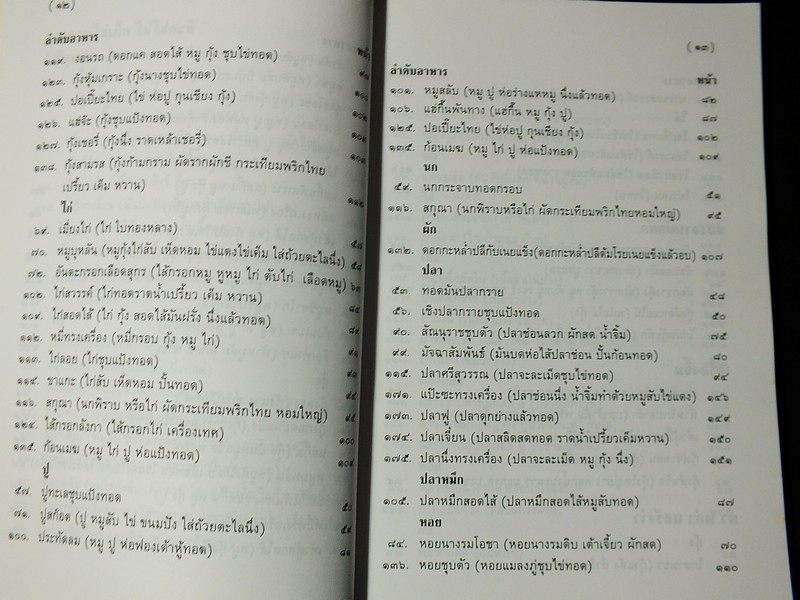 (๑๒)
ลำดับอาหาร หน้า
๑๑๙. งอนรถ (ดอกแค สอดไส้ หมู กุ้ง ชุบไข่ทอด)
๑๒๓. กุ้งหุ้มเกราะ (กุ้งนางชุบไข่ทอด)
๑๒๕. ปอเปี๊ยะไทย (ไข่ ห่อปู กุนเชียง กุ้ง)
๑๒๖. แฮ่จ๊ะ (กุ้งชุบแป้งทอด)
๑๒๗. กุ้งเชอรี่ (กุ้งนึ่ง ราดเหล้าเชอรี่)
๑๓๘. กุ้งสามรส (กุ้งก้ามกราม ผัดรากผักชี กระเทียมพริกไทย
เปรี้ยว เค็ม หวาน) ๑๑๒
ไก่
๖๙. เมี่ยงไก่ (ไก่ ใบทองหลาง) ๕๗
๗๐. หมูบุหลัน (หมูกุ้งไก่สับ เห็ดหอม ไข่แดงไข่เค็ม ใส่ถ้วยตะไลนึ่ง) ๕๘
๗๒. อันตะกรอกเลือดสุกร (ไส้กรอกหมู หูหมู ไก่ ตับไก่ เลือดหมู) ๖๐
๑๐๒. ไก่สวรรค์ (ไก่ทอดราดน้ำเปรี้ยว เค็ม หวาน) ๘๔
๑๐๙. ไก่สอดไส้ (ไก่ กุ้ง สอดไส้มันฝรั่ง นึ่งแล้วทอด) ๘๙
๑๑๒. หมี่ทรงเครื่อง (หมี่กรอบ กุ้ง หมู ไก่) ๙๑
๑๑๓. ไก่ลอย (ไก่ชุบแป้งทอด) ๙๓
๑๑๔. ขาแกะ (ไก่สับ เห็ดหอม ปั้นทอด) ๙๔
๑๑๖. สกุณา (นกพิราบ หรือไก่ ผัดกระเทียมพริกไทย หอมใหญ่) ๙๕
๑๒๔. ไส้กรอกลังกา (ไส้กรอกไก่ เครื่องเทศ) ๑๐๐
๑๓๕. ก้อนเมฆ (หมู ไก่ ปู ห่อแป้งทอด) ๑๐๙
ปู
๕๗. ปูทะเลชุบแป้งทอด ๕๐
๗๑. ปูสก๊อต (ปู หมูสับ ไข่ ขนมปัง ใส่ถ้วยตะไลนึ่ง) ๕๙
๑๐๐. ประทัดลม (หมู ปู ห่อฟองเต้าหู้ทอด) ๘๑
(๑๓)
ลำดับอาหาร หน้า
๑๐๑. หมูสลับ (หมู ปู ห่อร่างแหหมู นึ่งแล้วทอด) ๘๒
๑๐๖. แฮ่กึ้นพันทาง (แฮ่กึ้น หมู กุ้ง ปู) ๘๗
๑๒๕. ปอเปี๊ยะไทย (ไข่ห่อปู กุนเชียง กุ้ง) ๑๐๒
๑๓๕. ก้อนเมฆ (หมู ไก่ ปู ห่อแป้งทอด) ๑๐๙
นก
๕๙. นกกระจาบทอดกรอบ ๕๑
๑๑๖. สกุณา (นกพิราบหรือไก่ ผัดกระเทียมพริกไทยหอมใหญ่) ๙๕
ผัก
๑๓๒. ดอกกะหล่ำปลีกับเนยแข็ง(ดอกกะหล่ำปลีต้มโรยเนยแข็งแล้วอบ) ๑๐๗
ปลา
๕๓. ทอดมันปลากราย ๔๘
๕๖. เชิงปลากรายชุบแป้งทอด ๕๐
๙๐. สัณนุราชชุบตัว (ปลาช่อนลวก ผักสด น้ำจิ้ม) ๗๕
๙๙. มัจฉาสัมพันธ์ (มันบดห่อไส้ปลาช่อน ปั้นก้อนทอด) ๘๐
๑๑๕. ปลาศรีสุวรรณ (ปลาจะละเม็ดชุบไข่ทอด) ๙๔
๑๗๑. แป๊ะซะทรงเครื่อง (ปลาช่อนนึ่ง น้ำจิ้มทำด้วยหมูสับไข่แดง) ๑๔๖
๑๗๓. ปลาฟู (ปลาดุกย่างแล้วทอด) ๑๔๙
๑๗๔. ปลาเจี๋ยน (ปลาสลิดสดทอด ราดน้ำเปรี้ยวเค็มหวาน) ๑๕๐
๑๗๕. ปลานึ่งทรงเครื่อง (ปลาจะละเม็ด หมู กุ้ง นึ่ง) ๑๕๑
ปลาหมึก
๑๐๕. ปลาหมึกสอดไส้ (ปลาหมึกสอดไส้หมูสับทอด) ๘๗
หอย
๘๔. หอยนางรมโอชา (หอยนางรมดิบ เต้าเจี้ยว ผักสด) ๗๐
๑๓๖. หอยชุบตัว (หอยแมลงภู่ชุบไข่ทอด) ๑๑๐